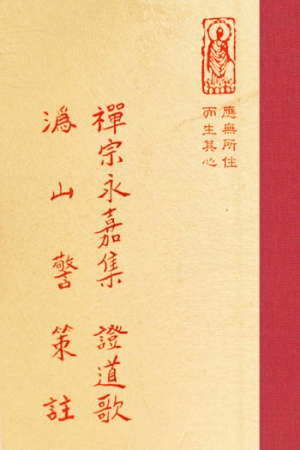 應無所住
而生其心
禪宗永嘉集 證道歌
溈山警策註